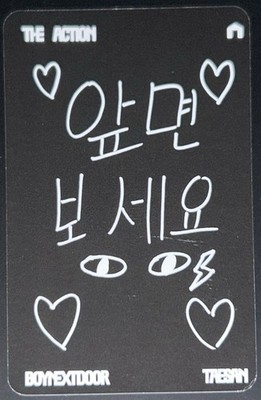 THE ACTION
앞면
보세요
BOYNEXTDOOR TAESAN